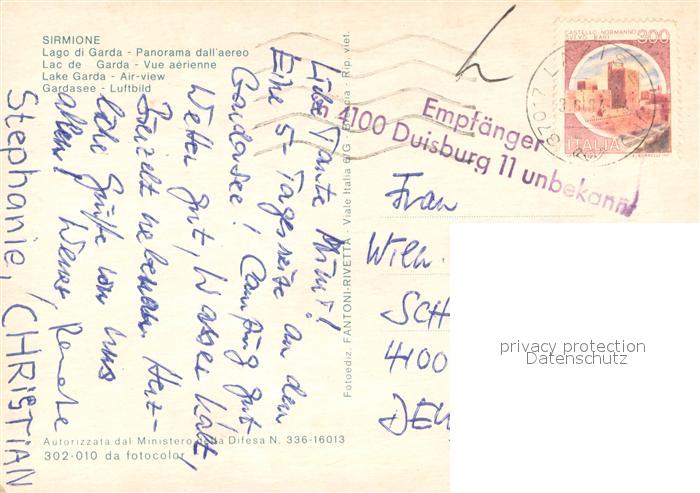 SIRMIONE
Lago di Garda - Panorama dall'aereo
Lac de Garda - Vue aérienne
Lake Garda - Air-view
Gardasee - Luftbild
Liebe Tante Mimi!
Eine 5-Tagesreise an den
Gardasee! Camping gut
Wetter gut, Wasser kalt,
Bärzelt nebenan. Herz-
liche Grüße von uns
allen! Werner, Renate
Stephanie, CHRiSTiAN
Autorizzata dal Ministero della Difesa N. 336-16013
302-010 da fotocolor
Fotoediz. FANTONI-RIVETTA - Viale Italia 6/G - Brescia - Rip. viet.
Empfänger
in 4100 Duisburg 11 unbekannt
CASTELLO NORMANNO
SVEVO BARI
300
ITALIA
37017
Frau
Wilh.
SCH
4100
DEU
privacy protection
Datenschutz